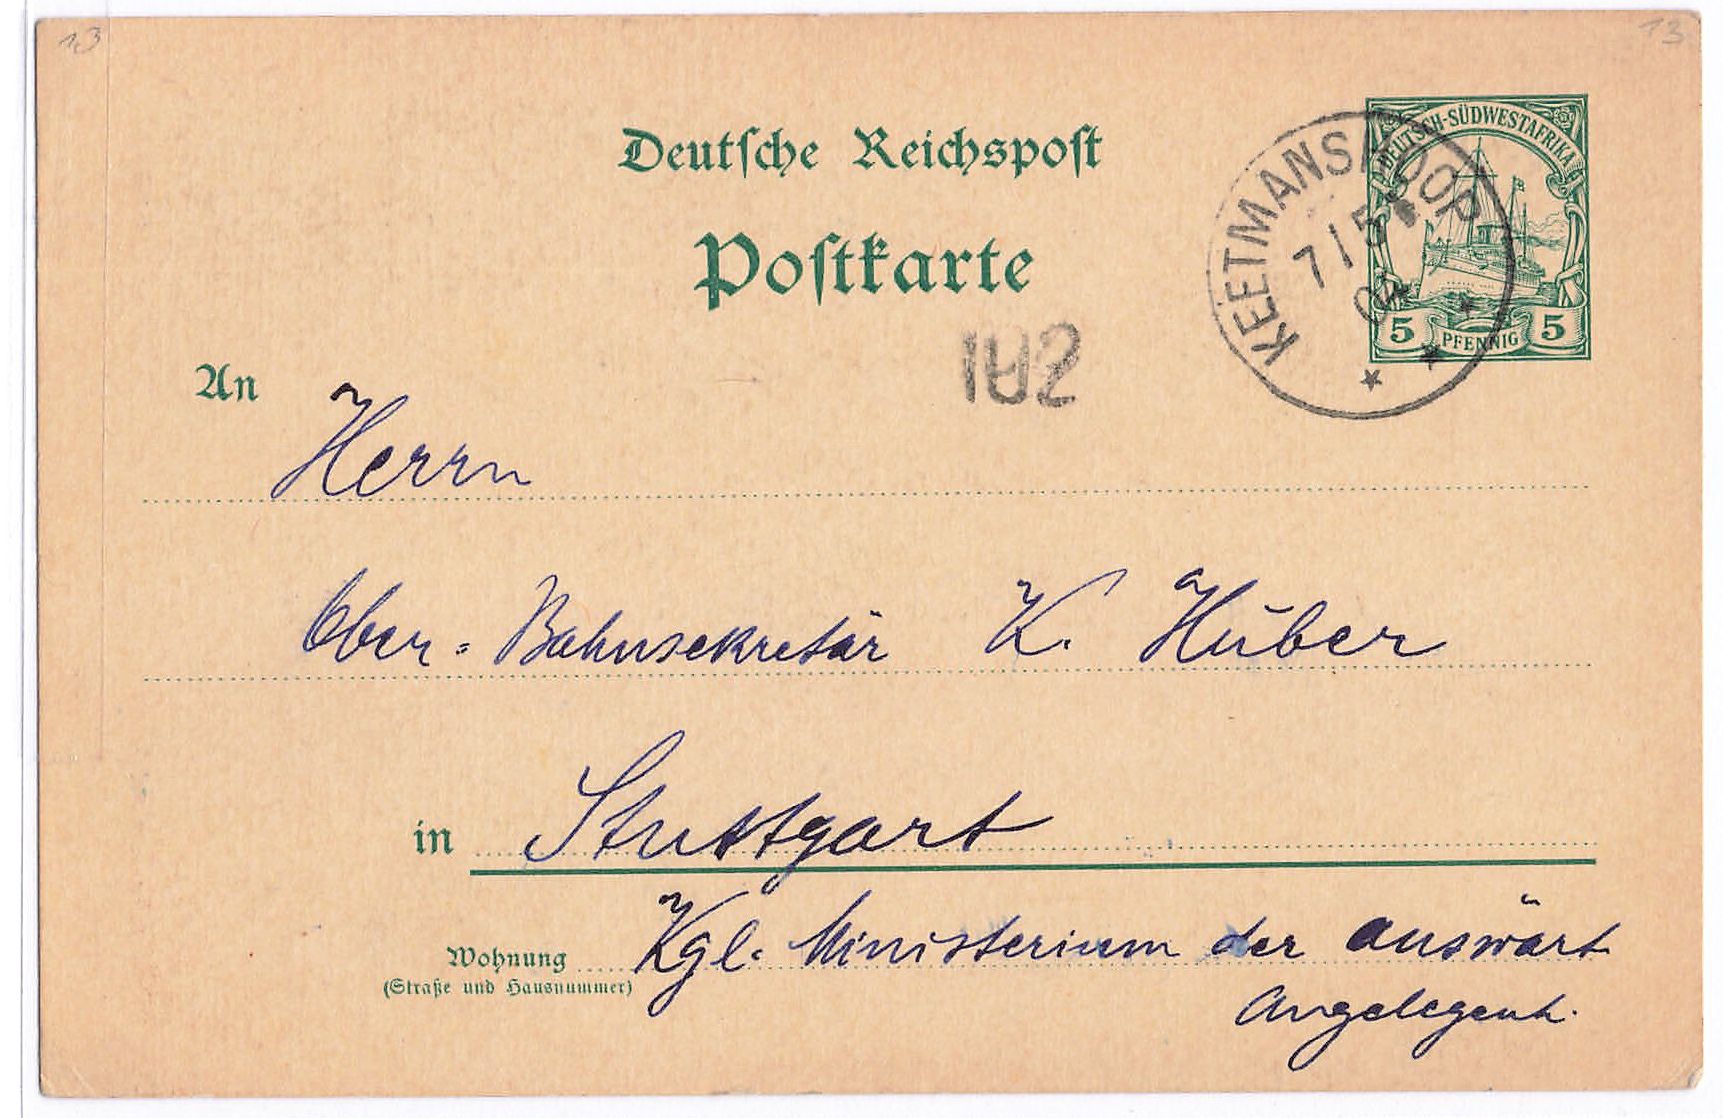 13
13
Deutsche Reichspost
Postkarte
DEUTSCH-SÜDWESTAFRIKA
5 PFENNIG 5
KEETMANSHOOP
7/5
04
An
Herrn
Ober-Bahnsekretär K. Huber
in Stuttgart
Wohnung
(Straße und Hausnummer)
Kgl. Ministerium der auswärt
Angelegenh.